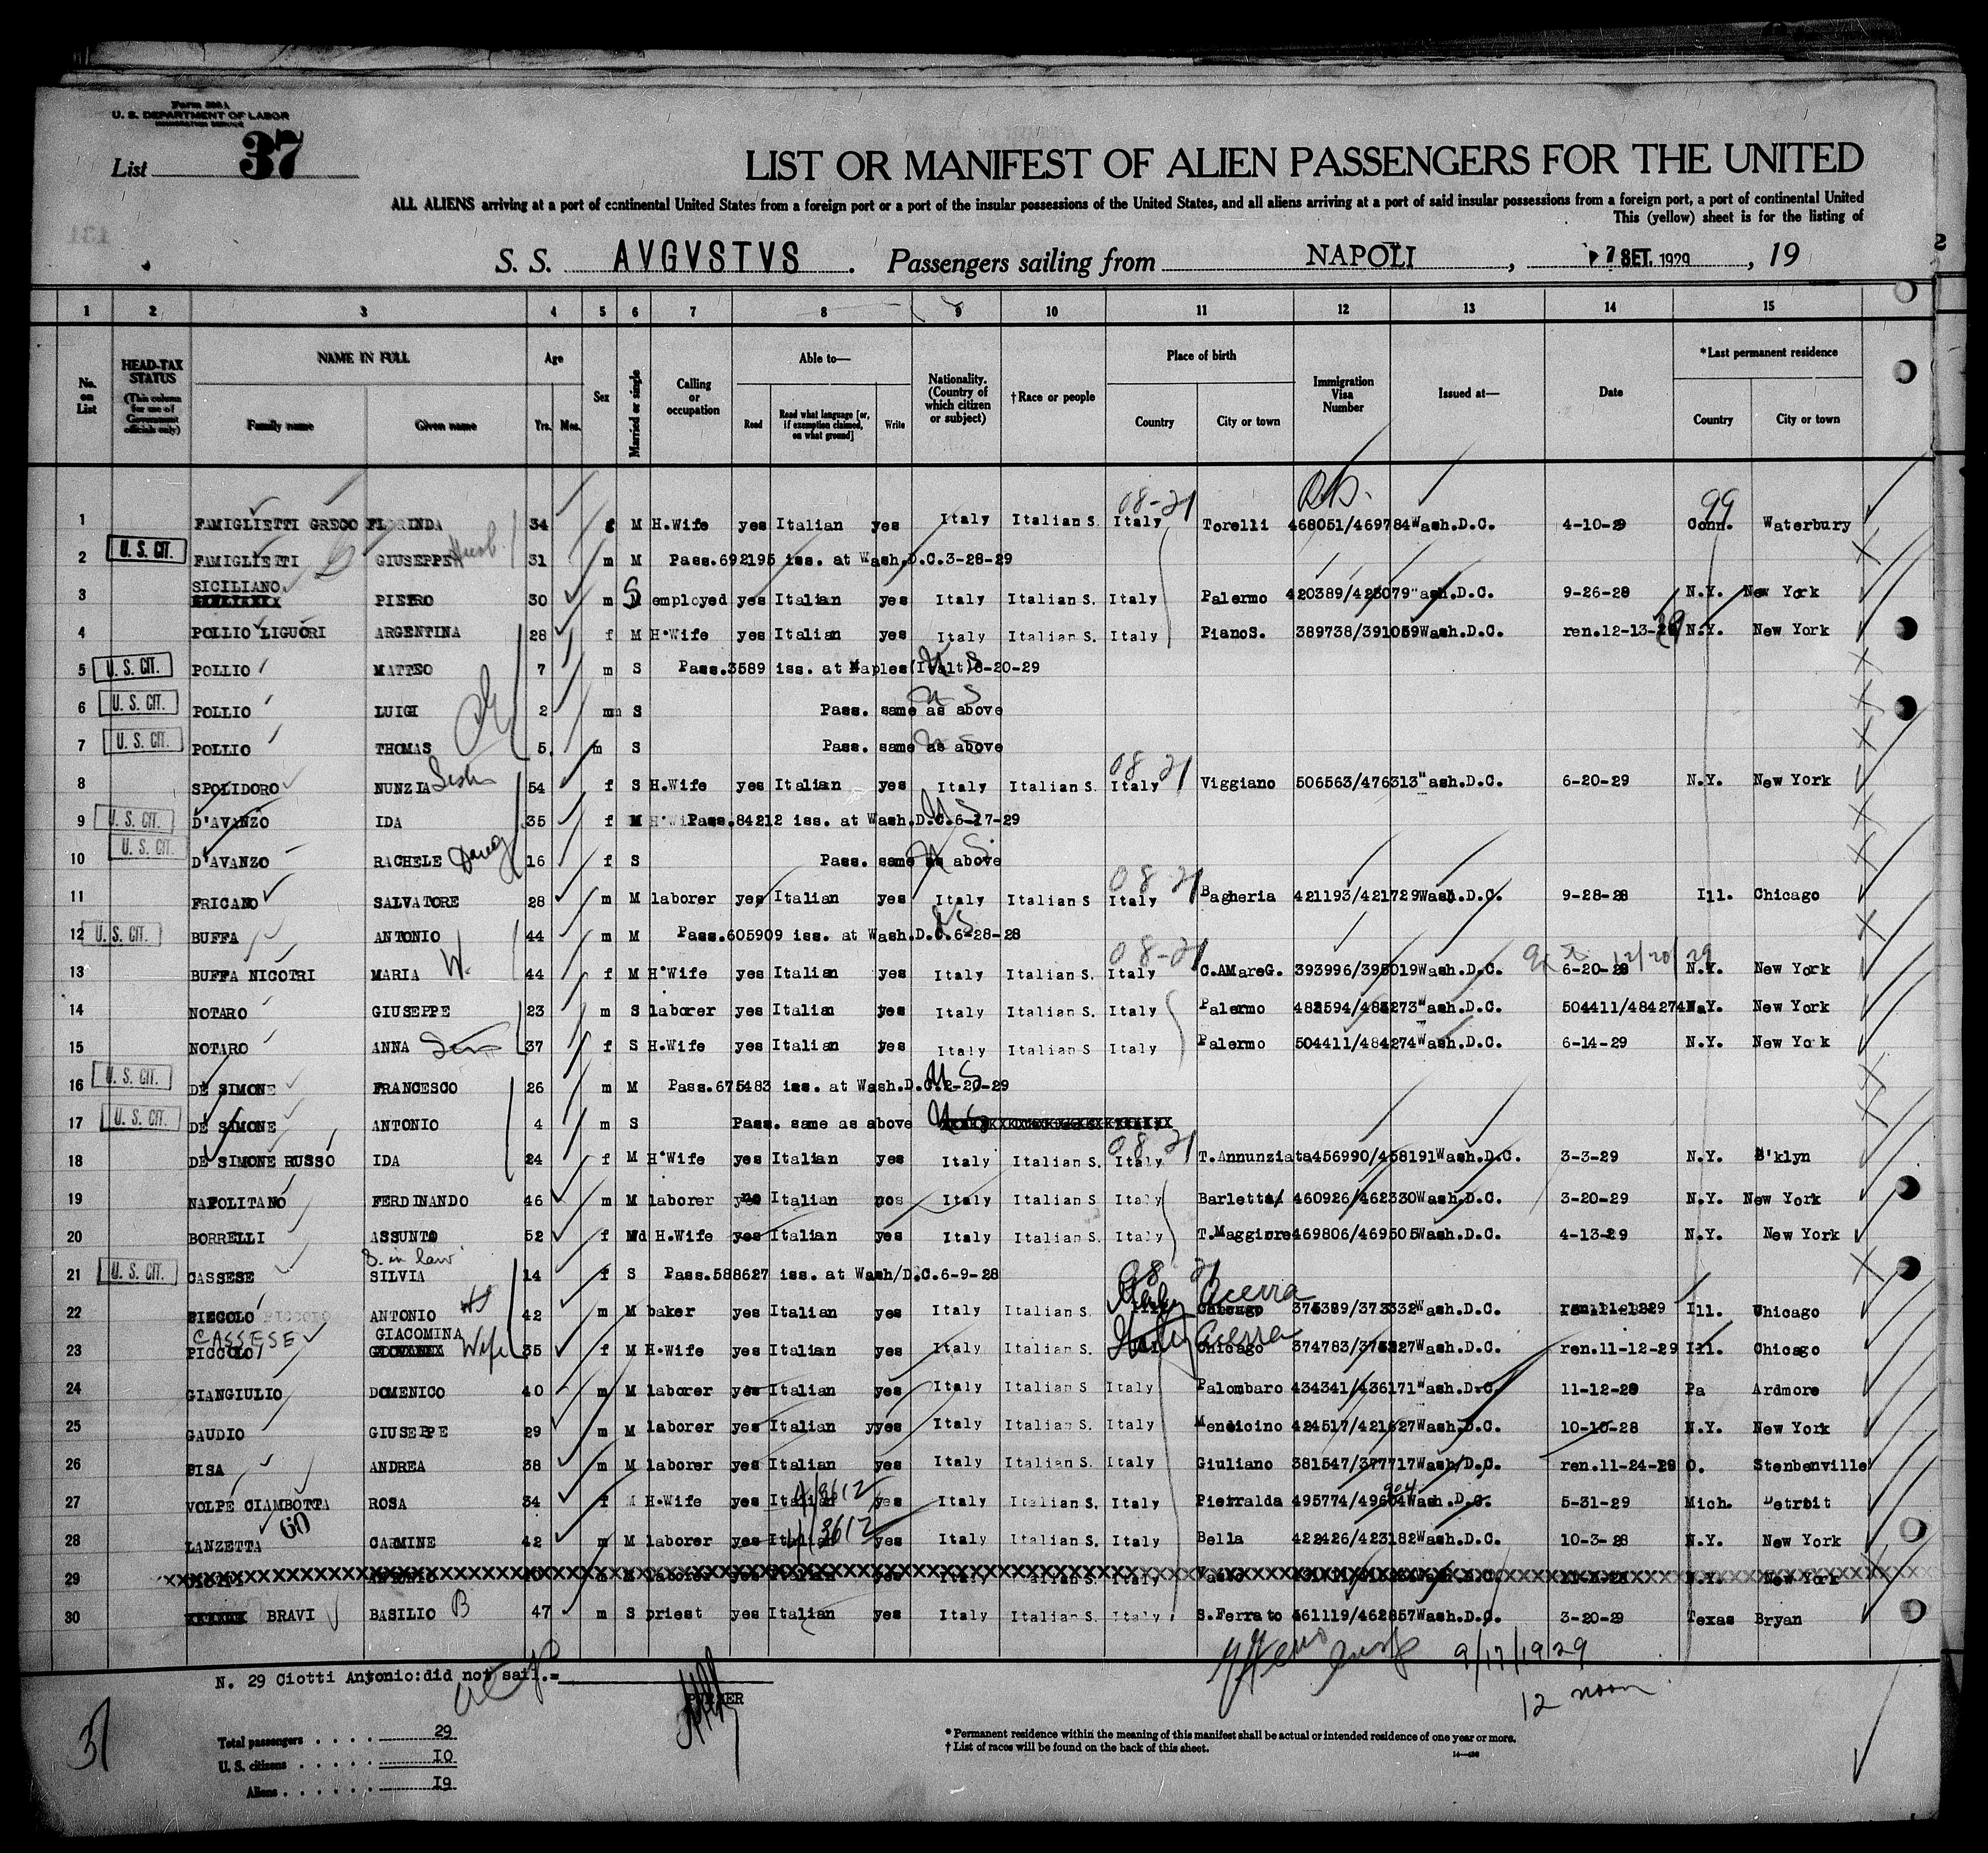 Form 500A
U. S. DEPARTMENT OF LABOR
IMMIGRATION SERVICE
List 37
LIST OR MANIFEST OF ALIEN PASSENGERS FOR THE UNITED
ALL ALIENS arriving at a port of continental United States from a foreign port or a port of the insular possessions of the United States, and all aliens arriving at a port of said insular possessions from a foreign port, a port of continental United
This (yellow) sheet is for the listing of
S. S. AVGVSTVS . Passengers sailing from NAPOLI , 7 SET. 1929 , 19
1 2 3 4 5 6 7 8 9 10 11 12 13 14 15
No. on List
HEAD-TAX STATUS (This column for use of Government officials only)
NAME IN FULL Family name Given name
Age Yrs. Mos.
Sex
Married or single
Calling or occupation
Able to— Read Read what language [or, if exemption claimed, on what ground] Write
Nationality. (Country of which citizen or subject)
†Race or people
Place of birth Country City or town
Immigration Visa Number
Issued at—
Date
*Last permanent residence Country City or town
08-21 99
1 FAMIGLIETTI GRECO FLORINDA 34 f M H.Wife yes Italian yes Italy Italian S. Italy Torelli 468051/469784 Wash.D.C. 4-10-29 Conn. Waterbury
2 U. S. CIT. FAMIGLIETTI GIUSEPPE Husb. 31 m M Pass.692195 iss. at Wash.D.C.3-28-29
3 SICILIANO PIETRO 30 m S employed yes Italian yes Italy Italian S. Italy Palermo 420389/423079 ash.D.C. 9-26-28 N.Y. New York
4 POLLIO LIGUORI ARGENTINA 28 f M H.Wife yes Italian yes Italy Italian S. Italy PianoS. 389738/391059 Wash.D.C. ren.12-13-28 N.Y. New York
5 U. S. CIT. POLLIO MATTEO 7 m S Pass.3589 iss. at Naples(Italt)8-20-29 U S
6 U. S. CIT. POLLIO LUIGI 2 m S Pass. same as above U S
7 U. S. CIT. POLLIO THOMAS 5 m S Pass. same as above U S
08-21
8 SPOLIDORO NUNZIA Sister 54 f S H.Wife yes Italian yes Italy Italian S. Italy Viggiano 506563/476313 "ash.D.C. 6-20-29 N.Y. New York
9 U. S. CIT. D'AVANZO IDA 35 f M H.Wi Pass.84212 iss. at Wash.D.C.6-17-29 U S
10 U. S. CIT. D'AVANZO RACHELE Daug 16 f S Pass. same as above U S
08-21
11 FRICANO SALVATORE 28 m M laborer yes Italian yes Italy Italian S Italy Bagheria 421193/421729 Wash.D.C. 9-28-28 Ill. Chicago
12 U. S. CIT. BUFFA ANTONIO 44 m M Pass.605909 iss. at Wash.D.C.6-28-28 U S
08-21 12/20/29
13 BUFFA NICOTRI MARIA W. 44 f M H.Wife yes Italian yes Italy Italian S. Italy C.AMareG. 393996/395019 Wash.D.C. 6-20-28 N.Y. New York
14 NOTARO GIUSEPPE 23 m S laborer yes Italian yes Italy Italian S. Italy Palermo 482594/483273 "ash.D.C. 504411/484274 N.Y. New York
15 NOTARO ANNA 37 f S H.Wife yes Italian yes Italy Italian S Italy Palermo 504411/484274 Wash.D.C. 6-14-29 N.Y. New Yo k
16 U. S. CIT. DE SIMONE FRANCESCO 26 m M Pass.675483 iss. at Wash.D.C.2-20-29 U S
17 U. S. CIT. DE SIMONE ANTONIO 4 m S Pass. same as above U S
08 21
18 DE SIMONE RUSSO IDA 24 f M H.Wife yes Italian yes Italy Italian S. Italy T.Annunziata 456990/458191 Wash.D.C. 3-3-29 N.Y. B'klyn
19 NAPOLITANO FERDINANDO 46 m M laborer no Italian nos Italy Italian S. Italy Barletta 460926/462330 Wash.D.C. 3-20-29 N.Y. New York
20 BORRELLI ASSUNTO 52 f Wd H.Wife yes Italian yes Italy Italian S. Italy T.Maggiore 469806/469505 Wash.D.C. 4-13-29 N.Y. New York
S. in law
21 U. S. CIT. CASSESE SILVIA 14 f S Pass.588627 iss. at Wash/D.C.6-9-28
08 21
22 PICCOLO ANTONIO 42 m M baker yes Italian yes Italy Italian S. Italy Acerra Chicago 373332 Wash.D.C. Ill. Chicago
CASSESE GIACOMINA
23 PICCOLO Wife 35 f M H.Wife yes Italian yes Italy Italian S. Italy Acerra Chicago 374783/ Wash.D.C. ren.11-12-29 Ill. Chicago
24 GIANGIULIO DOMENICO 40 m M laborer yes Italian yes Italy Italian S Italy Palombaro 434341/436171 "ash.D.C. 11-12-28 Pa Ardmore
25 GAUDIO GIUSEPPE 29 m M laborer yes Italian yyes Italy Italian S Italy Mendicino 424517/421627 Wash.D.C. 10-10-28 N.Y. New York
26 PISA ANDREA 38 m M laborer yes Italian yes Italy Italian S. Italy Giuliano 381547/377717 Wash/D.C. ren.11-24-28 O. Stenbenville
4/3612
27 VOLPE CIAMBOTTA ROSA 34 f M H.Wife yes Italian yes Italy Italian S. Italy Pietralda 495774/49 Wash.D.C. 5-31-29 Mich. Detroit
60 4/3612
28 LANZETTA CARMINE 42 m M laborer yes Italian yes Italy Italian S. Italy Bella 422426/423182 Wash.D.C. 10-3-28 N.Y. New York
29 N.Y. New York
30 BRAVI BASILIO B 47 m S priest yes Italian yes Italy Italian S. Italy S.Ferrato 461119/462857 Wash.D.C. 3-20-29 Texas Bryan
N. 29 Ciotti Antonio:did not sail.=
9/17/1929
12 noon
PURSER
37
Total passengers . . . . . 29
U. S. citizens . . . . . 10
Aliens . . . . . . 19
* Permanent residence within the meaning of this manifest shall be actual or intended residence of one year or more.
† List of races will be found on the back of this sheet.